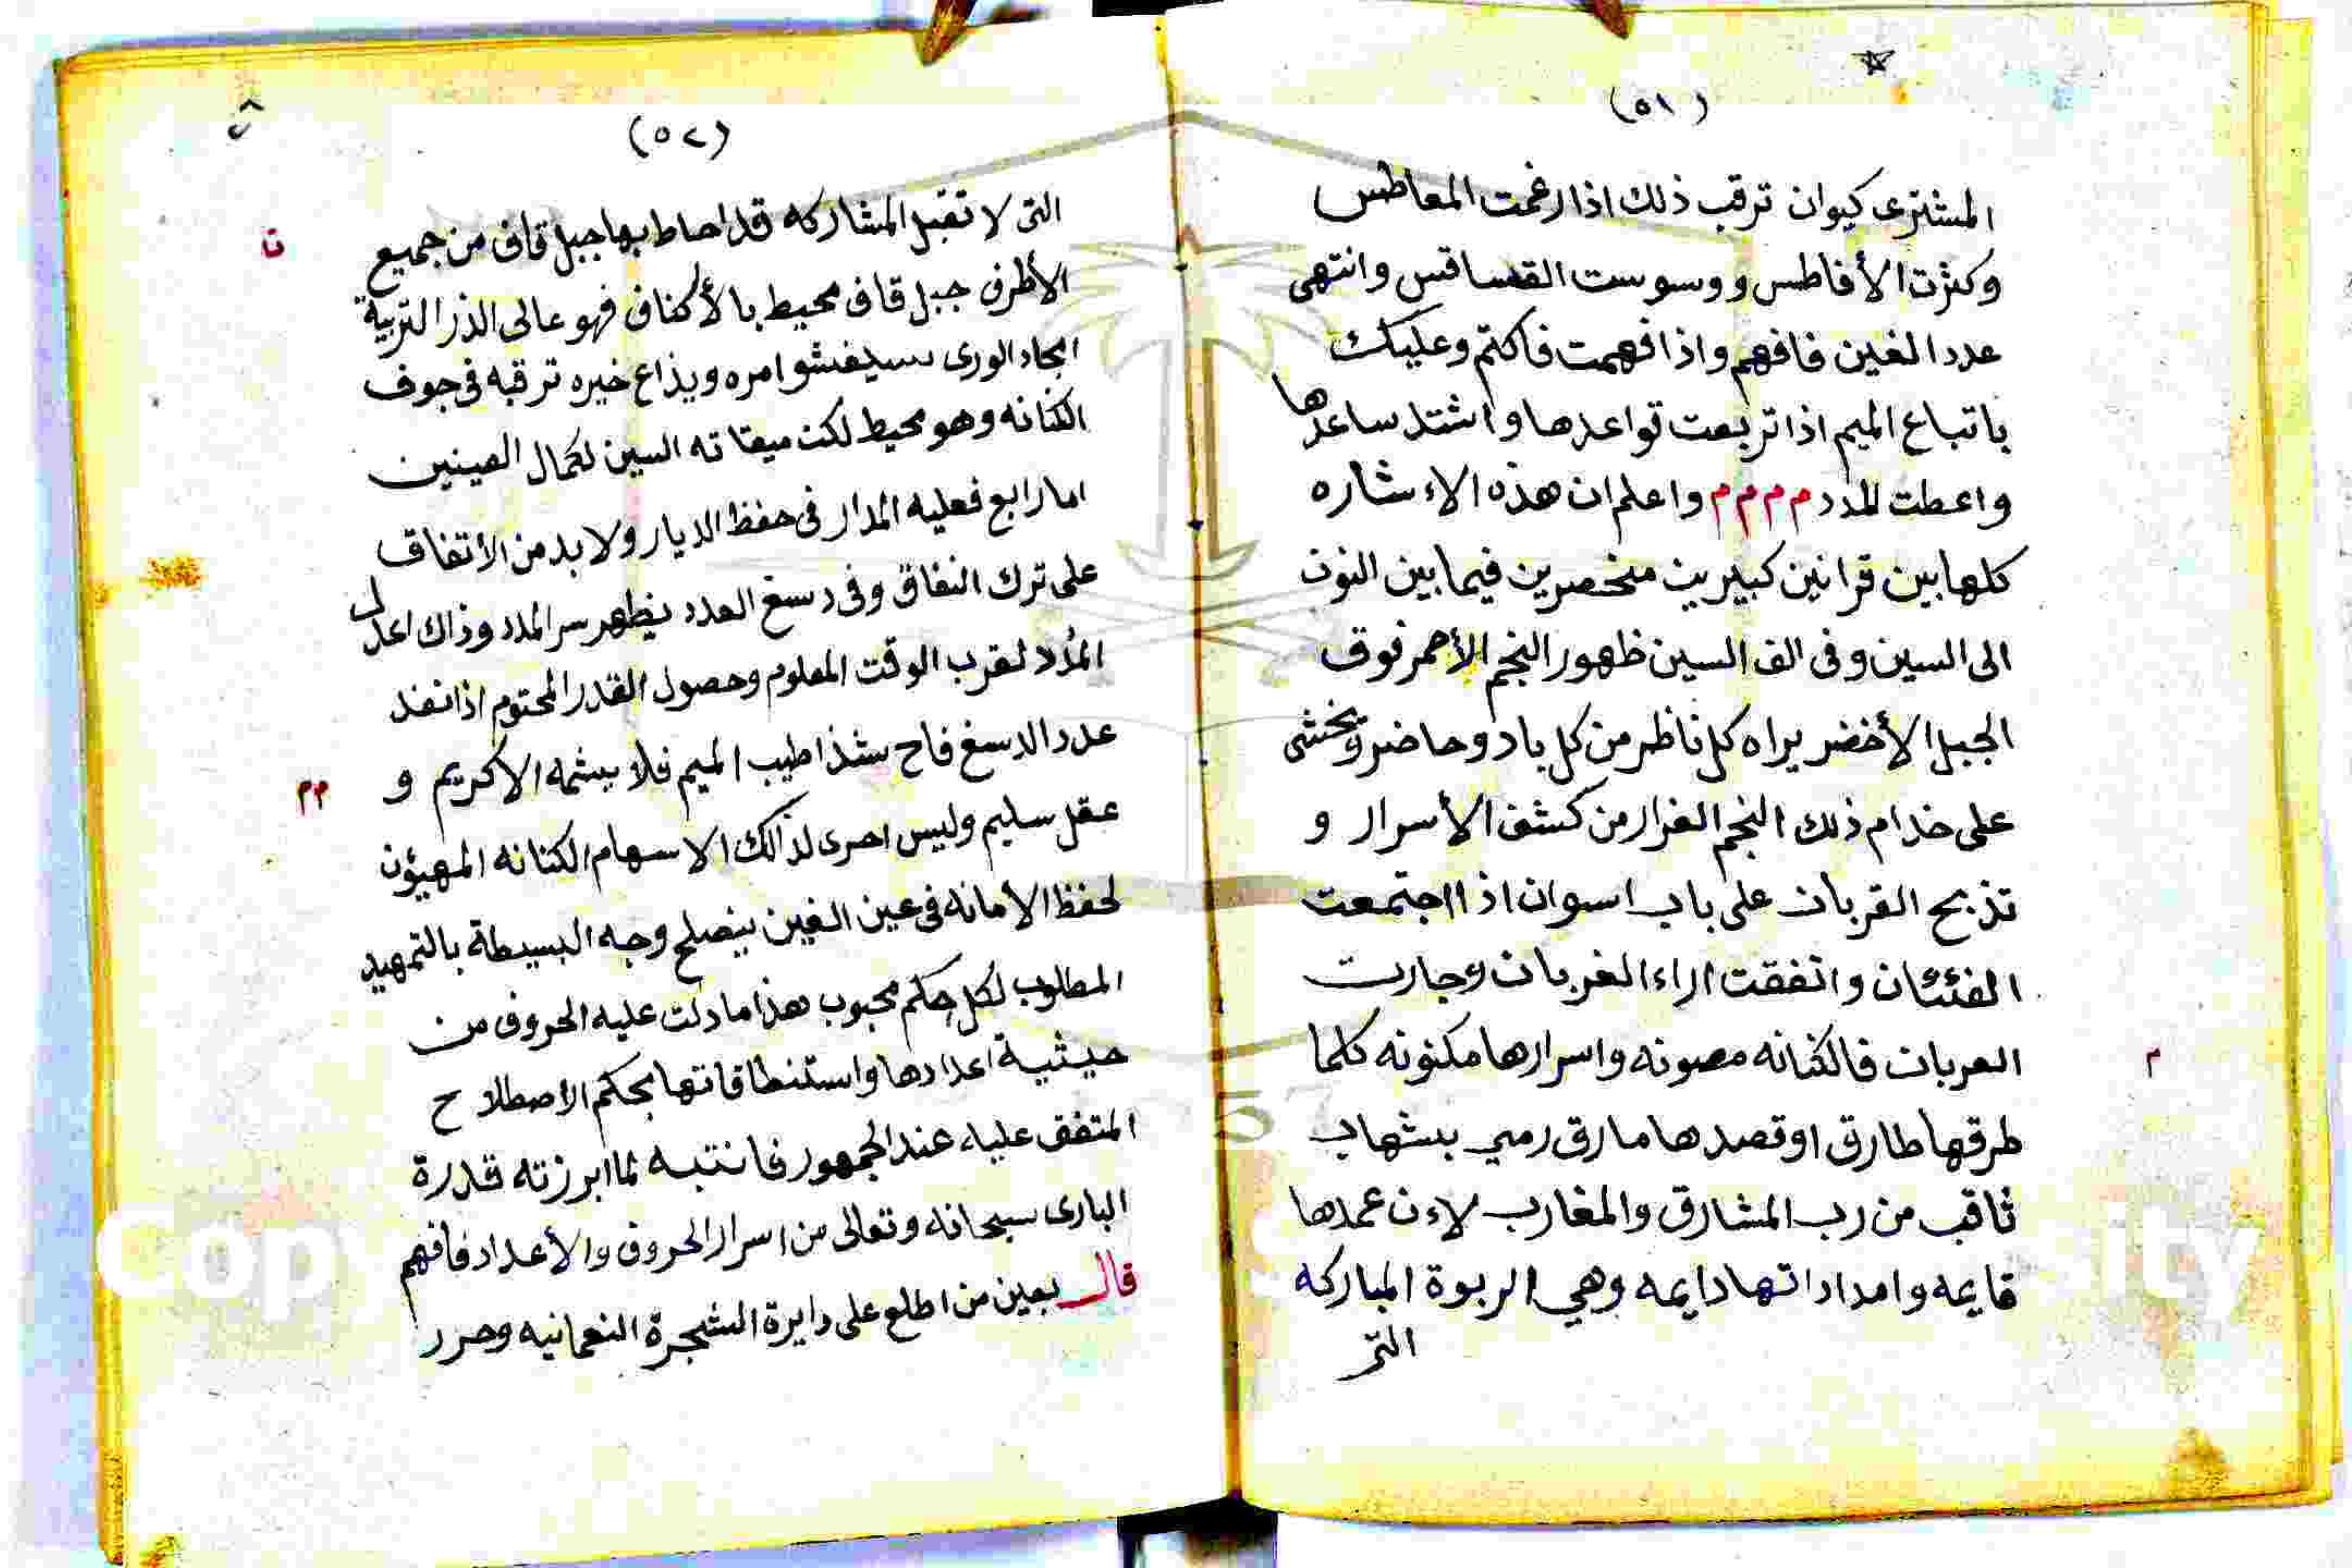 (٥١)
المشترى كيوان ترقب ذلك اذا رغمت المعاطس
وكثرت الأفاطس ووسوست القساقس وانتهى
عدد الغين فافهم واذا فهمت فاكتم وعليك
باتباع الميم اذا تربعت قواعدها واشتد ساعدها
واعطت المدد م م م م واعلم ان هذه الاءشاره
كلها بين قرانين كبيرين منحصرين فيما بين النون
الى السين وفى الف السين ظهور النجم الأحمر فوق
الجبل الأخضر يراه كل ناظر من كل باد وحاضر ويخشى
على خدام ذلك النجم الغرار من كشف الأسرار و
تذبح القربان على باب اسوان اذا اجتمعت
الفئتان واتفقت اراء الغربان وجارت
العربان فالكنانه مصونه واسرارها مكنونه كلما
م
طرقها طارق اوقصدها مارق رمي بشهاب
ثاقب من رب المشارق والمغارب لاءن عمدها
قايمه وامداداتها دايمه وهي الربوة المباركه
التى
(٥٢)
التى لا تقبل المشاركه قد احاط بها جبل قاف من جميع
ن
الأطرف جبل قاف محيط بالأكناف فهو عالى الذر التربية
الورى سيفشوا امره ويذاع خيره ترقبه فى جوف
الكنانه وهو محيط لكن ميقاته السين لكمال العينين
اما رابع فعليه المدار فى حفظ الديار ولا بد من الأتفاق
على ترك النفاق وفى دسغ العدد يظهر سر المدد وذاك اعدل
المدد لقرب الوقت المعلوم وحصول القدر المحتوم اذا نفذ
عدد الدسغ فاح شذا طيب الميم فلا يشمه الاكريم و
مم
عقل سليم وليس احرى لذالك الاسهام الكنانه المهيؤن
لحفظ الأمانه فى عين الغين ينصلح وجه البسيطة بالتمهيد
المطلوب لكل حكم محبوب هذا ما دلت عليه الحروف من
حيثية اعدادها واستنطاقاتها بحكم الاصطلاح
المتفق عليه عند الجمهور فانتبه لما ابرزته قدرة
البارى سبحانه وتعالى من اسرار الحروف والأعداد فافهم
قال بعين من اطلع على دايرة الشجرة النعمانيه وحرر